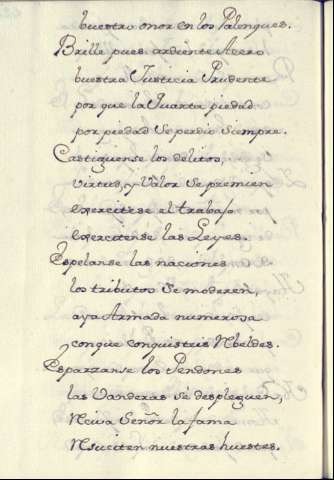 buestro onor en los Palenques.
Brille pues ardiente Acero
buestra Justicia Prudente
por que la Juarta piedad
por piedad se perdio siempre.
Castiguense los delitos,
virtud, y Valor se premien
exercitese el trabajo
exercitense las Leyes.
Espelanse las naciones
los tributos se moderen,
aya Armada numerosa
con que conquisteis Rbeldes.
Esparzanse los Pendones
las Vanderas se desplieguen,
Reciva Señor la fama
Resuciten nuestras huestes.